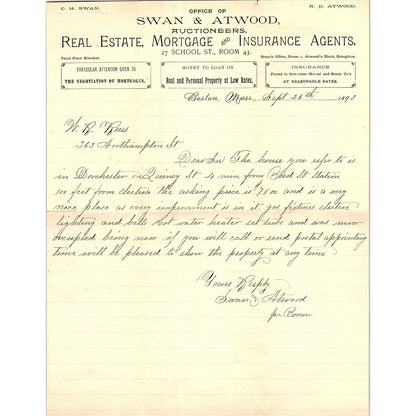 C. H. SWAN.
N. D. ATWOOD.
OFFICE OF
SWAN & ATWOOD,
AUCTIONEERS,
REAL ESTATE, MORTGAGE AND INSURANCE AGENTS,
27 SCHOOL ST., ROOM 43.
Third Floor Elevator.
Branch Office, Room 1, Atwood's Block, Stoughton.
PARTICULAR ATTENTION GIVEN TO
THE NEGOTIATION OF MORTGAGES.
MONEY TO LOAN ON
Real and Personal Property at Low Rates,
INSURANCE
Placed in first-class Mutual and Stock Co's
AT REASONABLE RATES.
Boston, Mass, Sept 26th 1893
W. R.
263 Northampton St
Dear Sir The house you refer to is
in Dorchester on Quincy St 4 min from Bird St Station
100 feet from electrics the asking price is and is a very
nice place as every improvement is in it gas fixtures electric
lighting and bells hot water heater set tubs and was never
occupied being new if you will call or send postal appointing
time will be pleased to show the property at any time
Yours Respty
Swan & Atwood
per